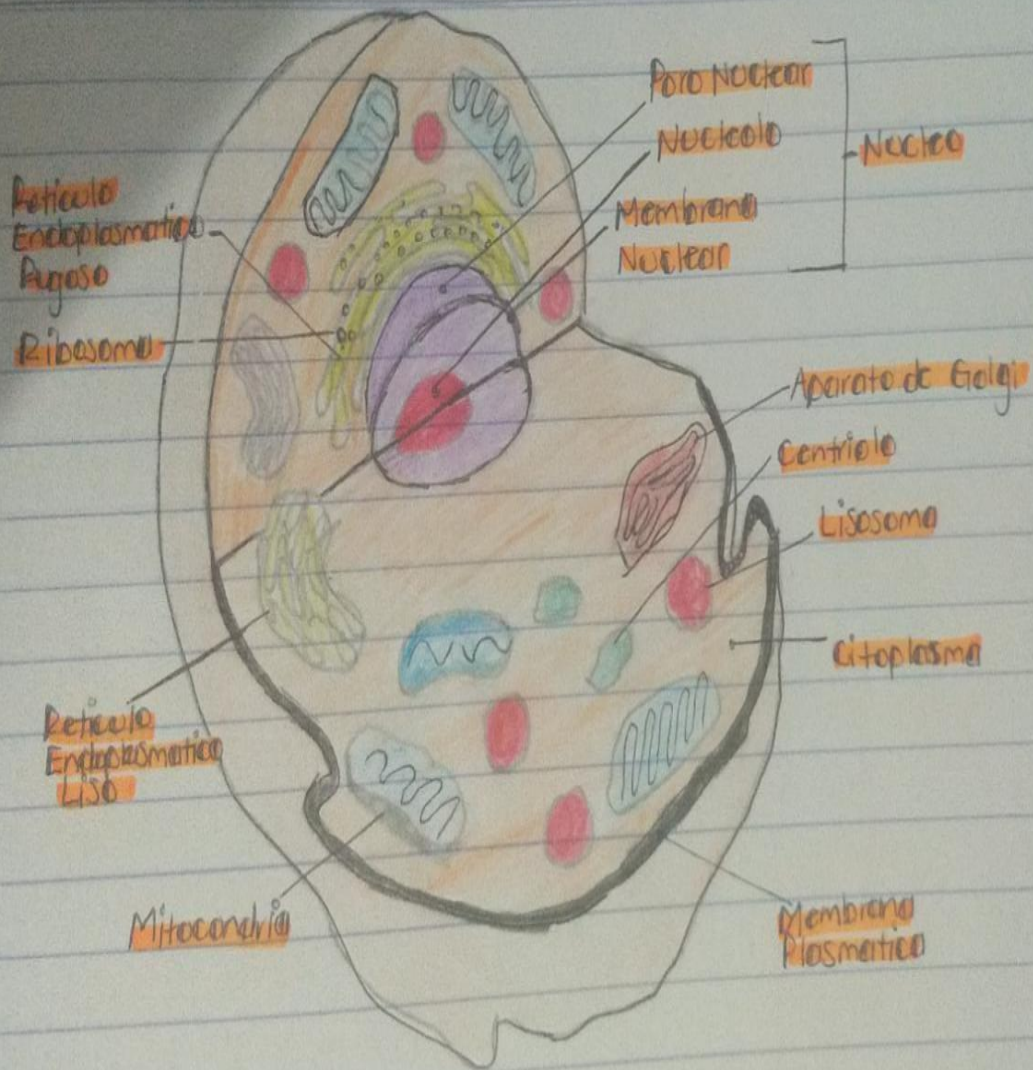 Poro Nuclear
Nucleolo
Nucleo
Membrana
Nuclear
Reticulo
Endoplasmatico
Rugoso
Ribosoma
Aparato de Golgi
Centriolo
Lisosoma
Citoplasma
Reticulo
Endoplasmatico
Liso
Mitocondria
Membrana
Plasmatica